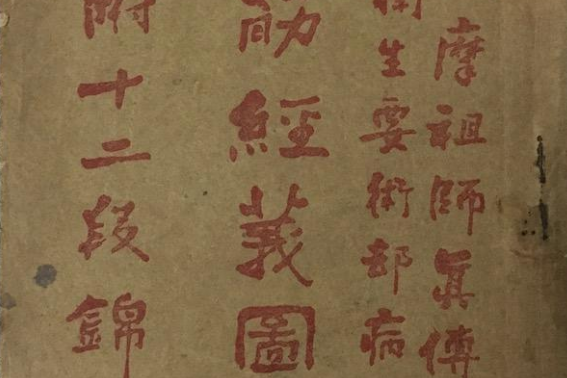 摩祖師真傳
衛生要術却病
筋經義圖
附十二段錦